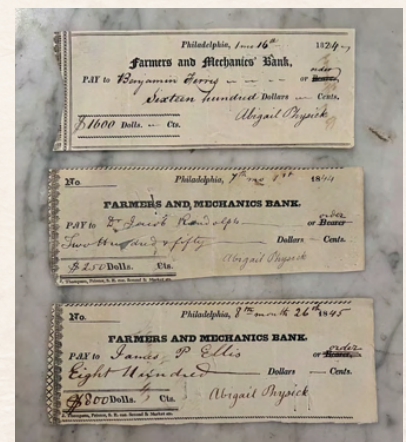 Philadelphia, 1 mo 16th 1844
Farmers and Mechanics' Bank,
order
PAY to Benjamin Ferris or Bearer,
Sixteen hundred Dollars — Cents.
Abigail Physick
$1600 Dolls. — Cts.
No. Philadelphia, 7th mo 1844
FARMERS AND MECHANICS BANK.
order
PAY to Dr Jacob Randolph or Bearer
Two Hundred & fifty Dollars — Cents.
$250 Dolls. Cts. Abigail Physick
No. Philadelphia, 8th month 26th 1845
FARMERS AND MECHANICS BANK.
order
PAY to James P Ellis or Bearer,
Eight Hundred Dollars — Cents.
$800 Dolls. Cts. Abigail Physick